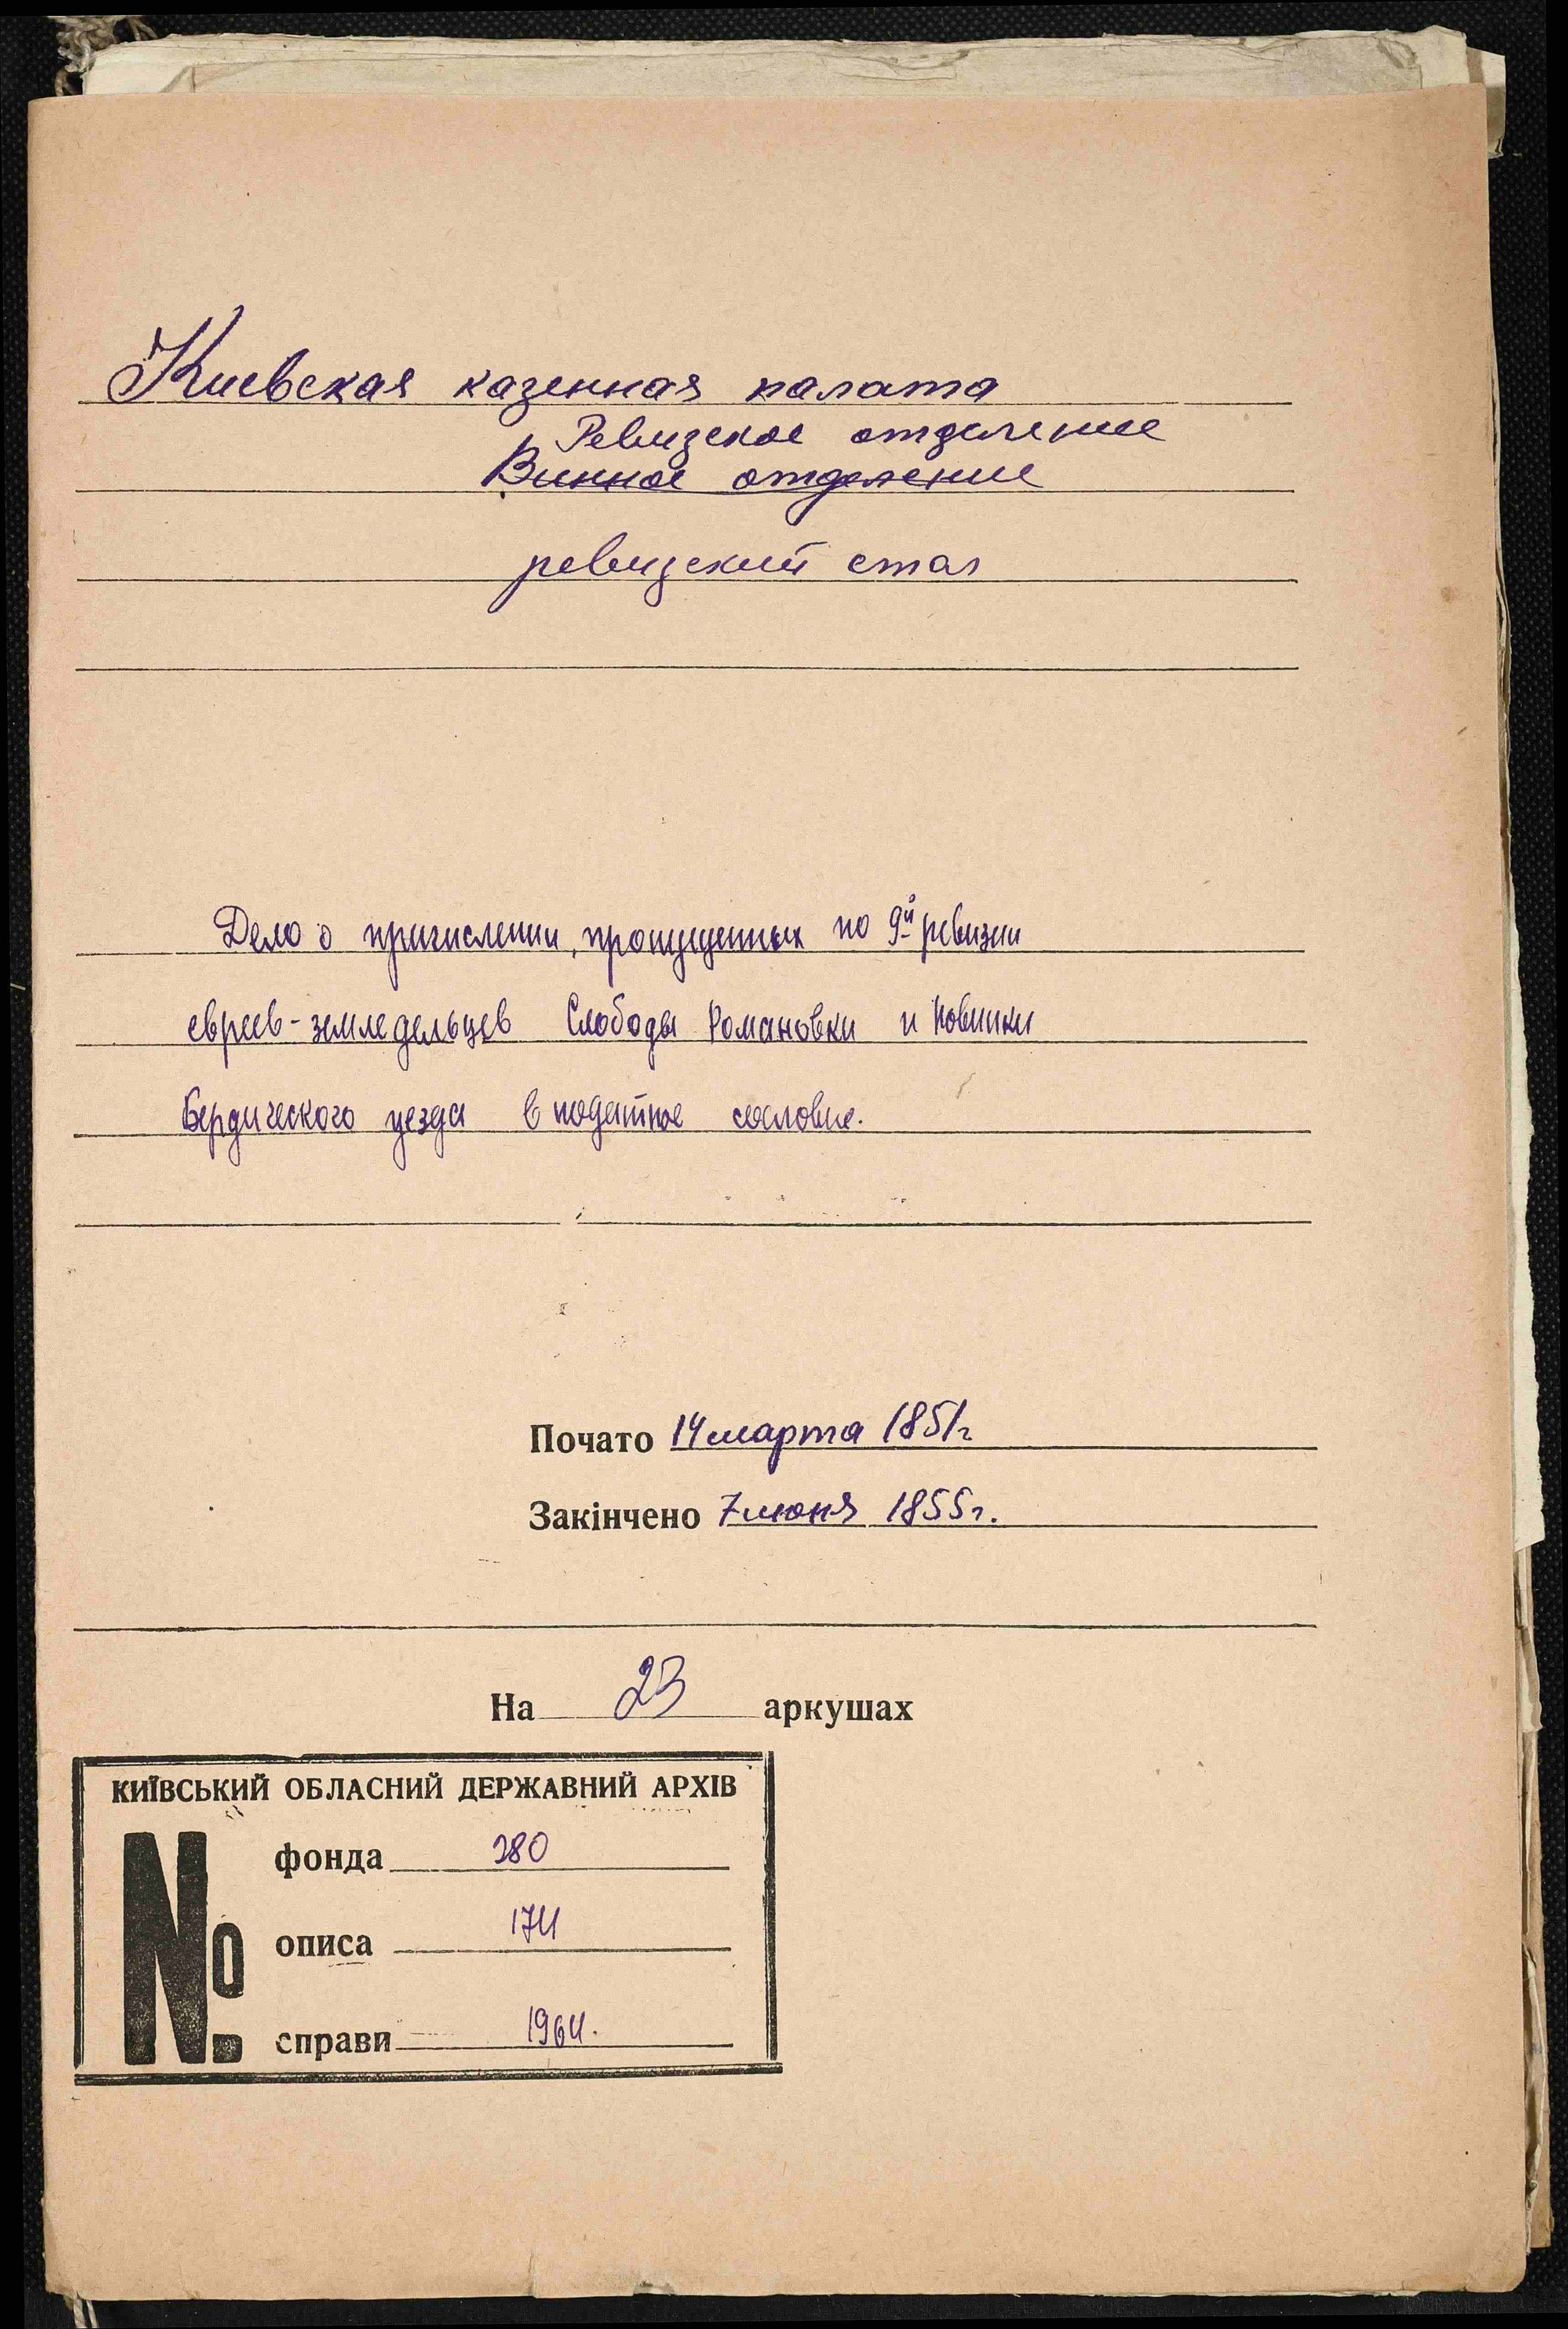 Киевская казенная палата
Ревизское отделение
Винное отделение
ревизский стол
Дело о причислении, пропущенных по 9й ревизии
евреев-земледельцев Слободы Романовки и Новинки
Бердического уезда в податное сословие.
Почато 14 марта 1851г
Закінчено 7 июня 1855г.
На 23 аркушах
КИЇВСЬКИЙ ОБЛАСНИЙ ДЕРЖАВНИЙ АРХІВ
№ фонда 280
описа 174
справи 1964.